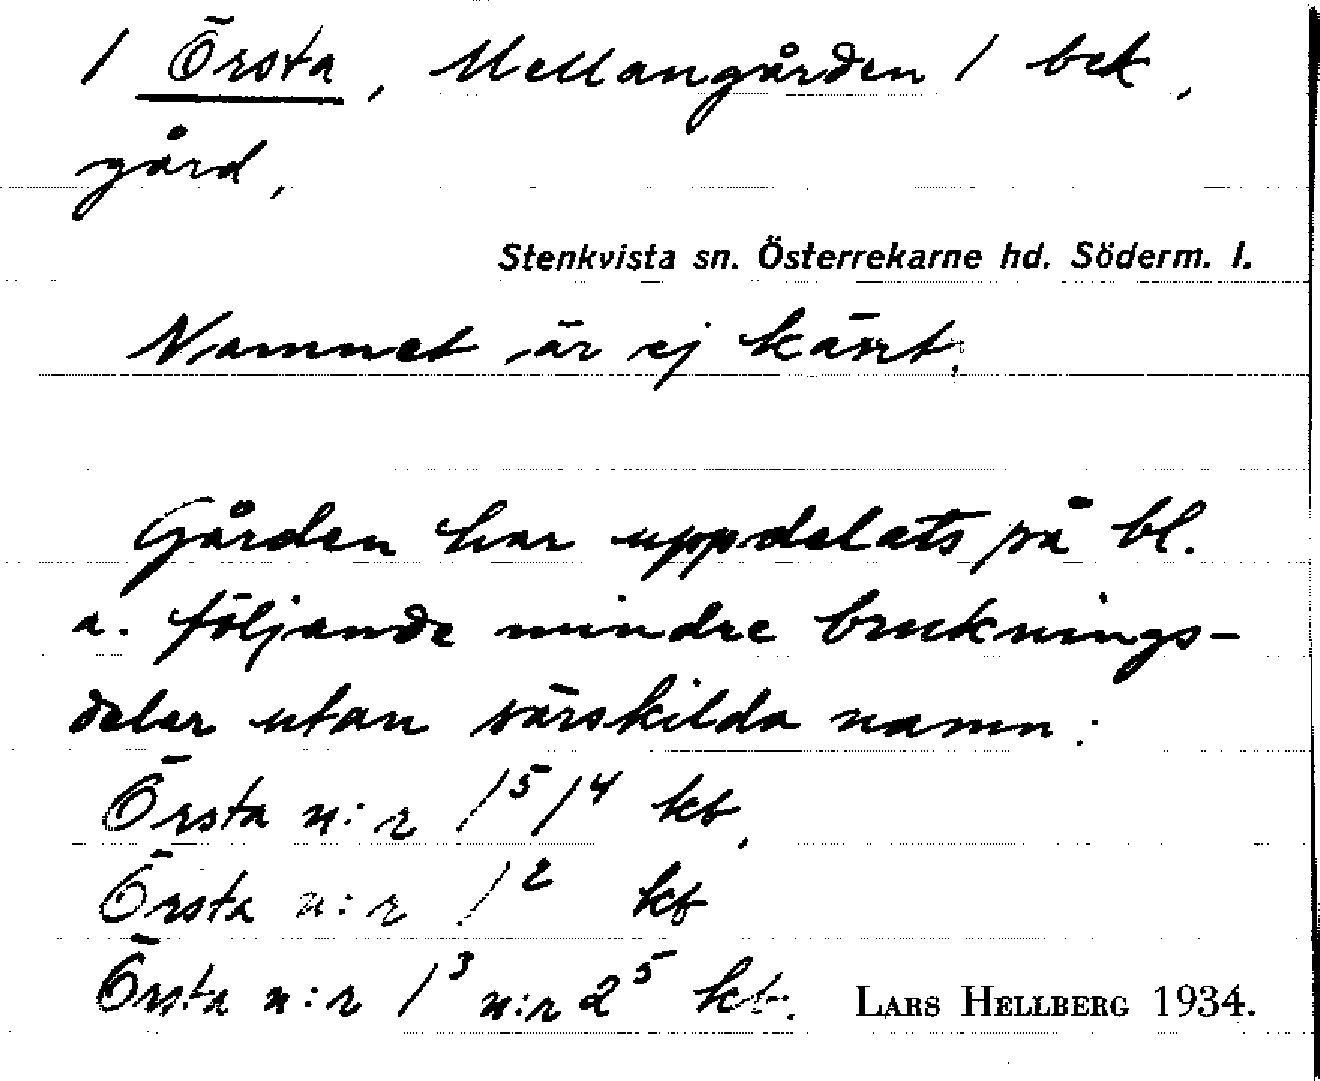 / Örsta, Mellangården / bek,
gård,
Stenkvista sn. Österrekarne hd. Söderm. l.
Namnet är ej känt.
Gården har uppdelats på bl.
a. följande mindre bruknings-
delar utan särskilda namn:
Örsta n:r 1⁵ 1⁴ kb,
Örsta n:r 1² kb
Örsta n:r 1³ n:r 2⁵ kb. LARS HELLBERG 1934.